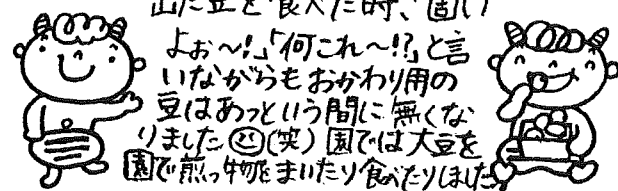 豆を食べた時、固い
よぉ～!」「何これ～!?」と言
いながらもおかわり用の
豆はあっという間に無くな
りました(笑) 園では大豆を
園で煎った物をまいたり食べたりしました。